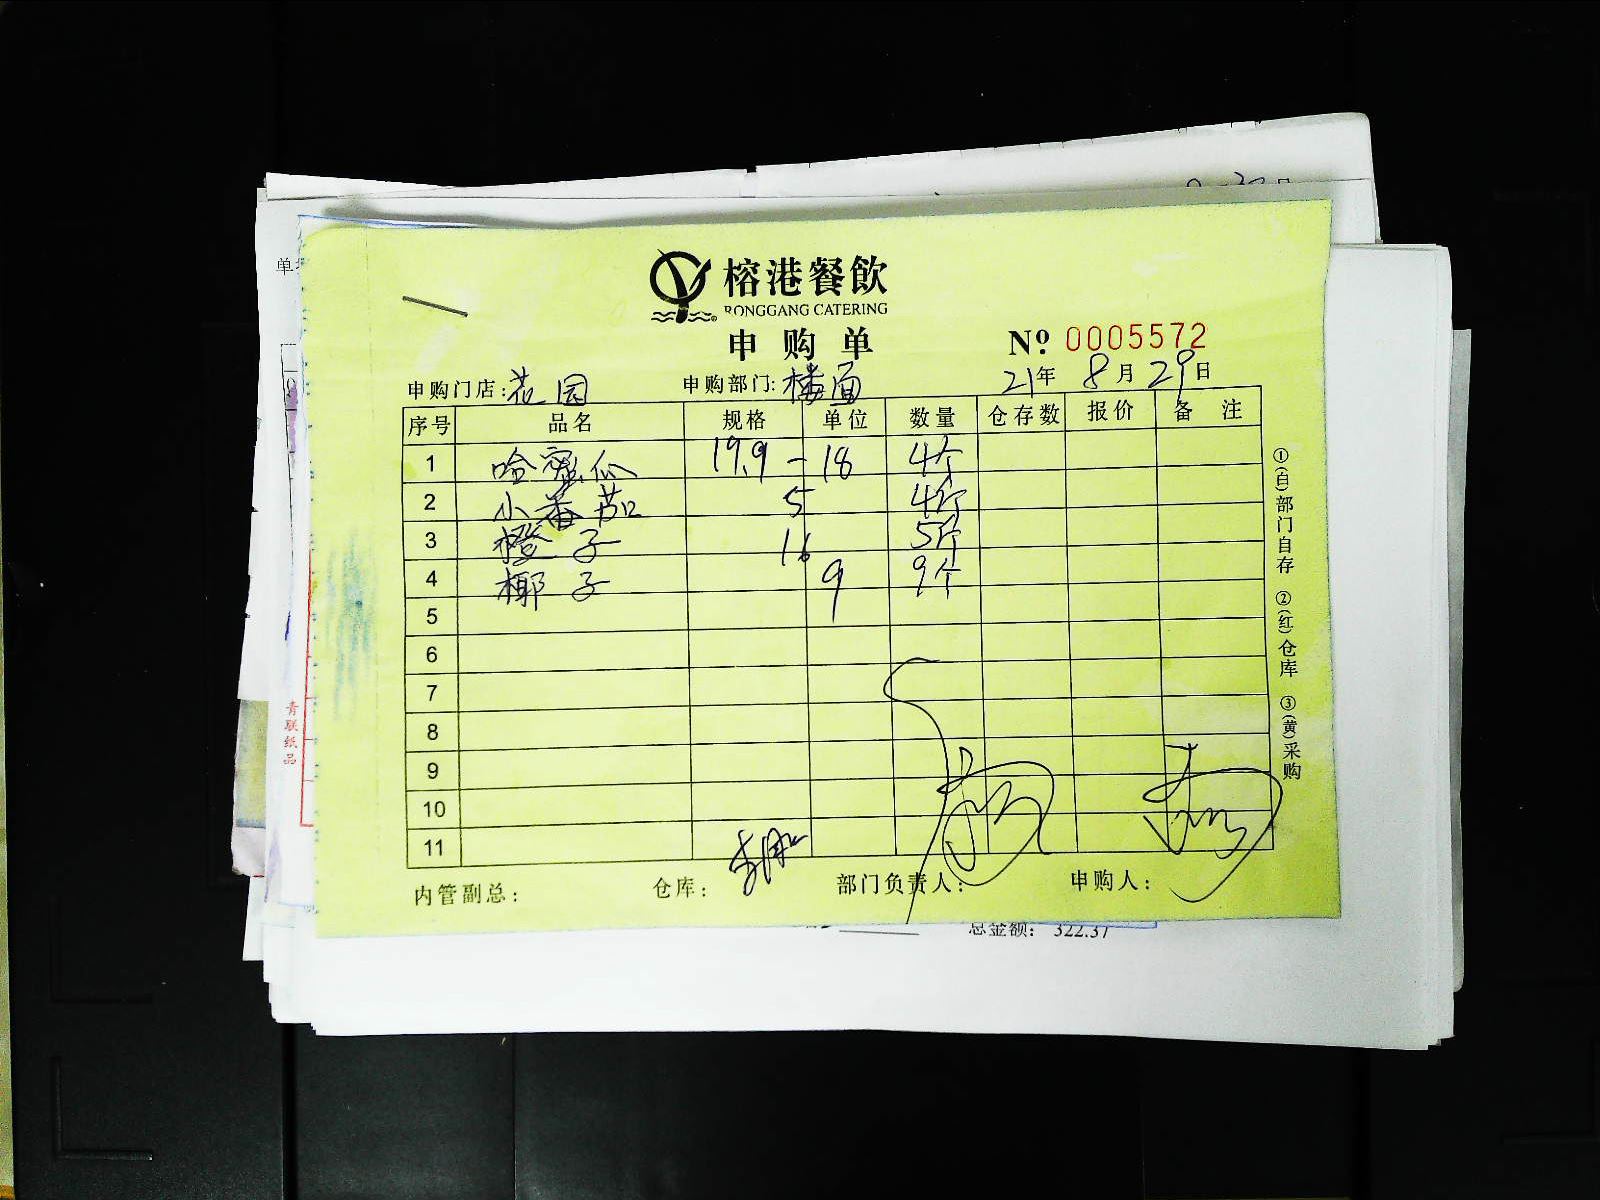 榕港餐飲
RONGGANG CATERING
申购单
Nº 0005572
申购门店:花园 申购部门:楼面 21年 8月29日
序号 品名 规格 单位 数量 仓存数 报价 备注
1 哈密瓜 19.9-18 4个
2 小番茄 5 4斤
3 橙子 16 5斤
4 椰子 9 9个
5
6
7
8
9
10
11
内管副总: 仓库: 部门负责人: 申购人:
①(白)部门自存 ②(红)仓库 ③(黄)采购
青联纸品
总金额: 322.37